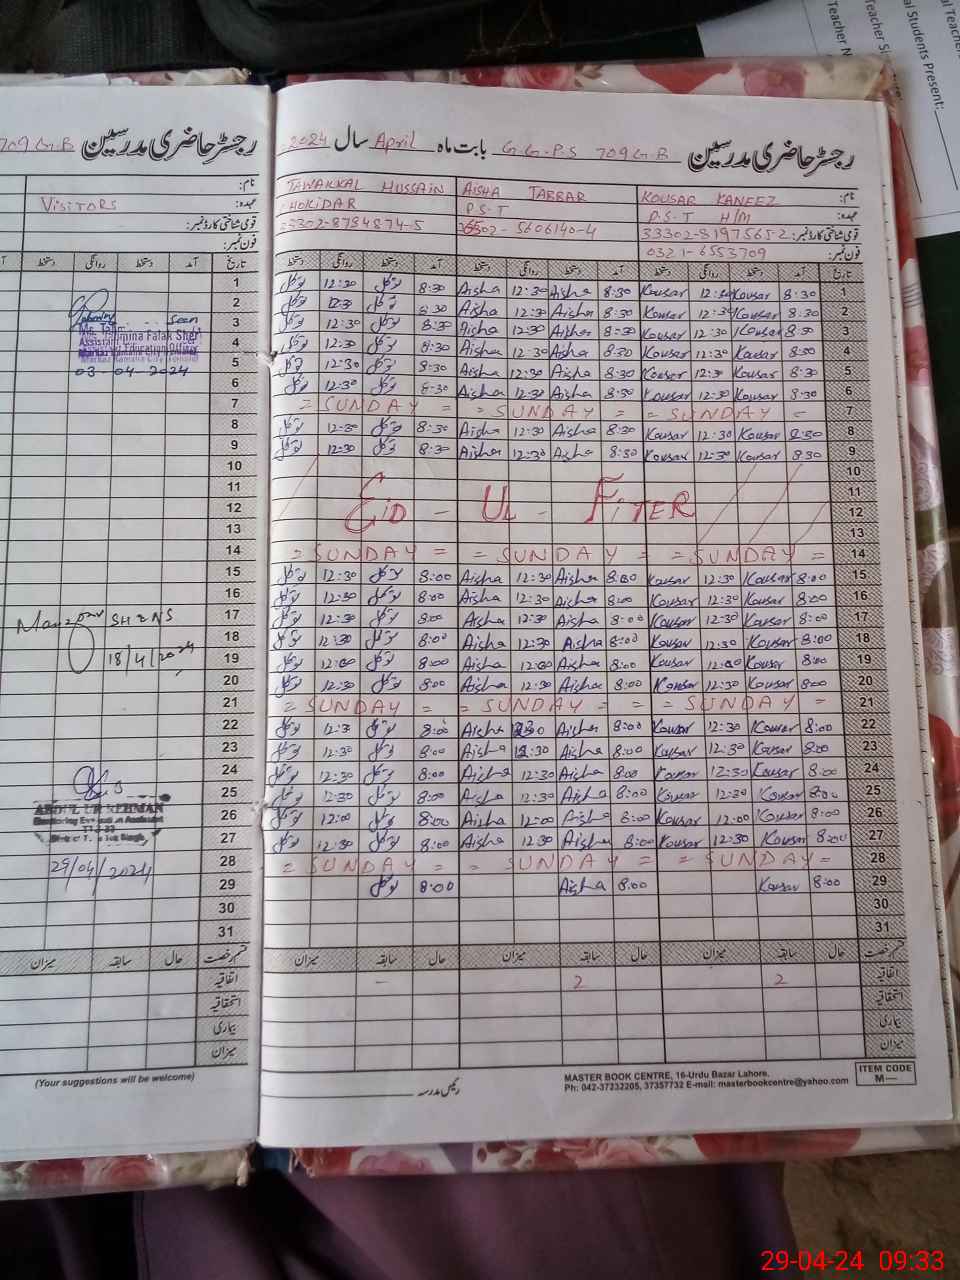 Teacher N
Teacher Si
al Students Present:
al Teacher
709 G.B رجسٹر حاضری مدرسین
نام:
VISITORS عہدہ:
قومی شناختی کارڈ نمبر:
فون نمبر:
دستخط روانگی دستخط آمد تاریخ
1
2
3 Seen
4
5
03-04-2024
6
7
8
9
10
11
12
13
14
15
16
17 SH&NS
18
19 18/4/2024
20
21
22
23
24
25
ABDUL UR REHMAN
26
27
28
29/04/2024
29
30
31
میزان سابقہ حال قسم رخصت
اتفاقیہ
استحقاقیہ
بیماری
میزان
(Your suggestions will be welcome)
2024 سال April بابت ماہ G.G.P.S 709 G.B رجسٹر حاضری مدرسین
TAWAKKAL HUSSAIN AISHA JABBAR KOUSAR KANEEZ نام:
HOKIDAR P.S.T P.S.T H/M عہدہ:
33302-8734874-5 5606140-4 33302-8197565-2 قومی شناختی کارڈ نمبر:
0321-6553709 فون نمبر:
دستخط روانگی دستخط آمد دستخط روانگی دستخط آمد دستخط روانگی دستخط آمد تاریخ
توکل 12:30 توکل 8:30 Aisha 12:30 Aisha 8:30 Kousar 12:30 Kousar 8:30 1
توکل 12:30 توکل 8:30 Aisha 12:30 Aisha 8:30 Kousar 12:30 Kousar 8:30 2
توکل 12:30 توکل 8:30 Aisha 12:30 Aisha 8:30 Kousar 12:30 Kousar 8:30 3
توکل 12:30 توکل 8:30 Aisha 12:30 Aisha 8:30 Kousar 12:30 Kousar 8:00 4
توکل 12:30 توکل 8:30 Aisha 12:30 Aisha 8:30 Kousar 12:30 Kousar 8:30 5
توکل 12:30 توکل 8:30 Aisha 12:30 Aisha 8:30 Kousar 12:30 Kousar 8:30 6
= SUNDAY = = SUNDAY = = SUNDAY = 7
توکل 12:30 توکل 8:30 Aisha 12:30 Aisha 8:30 Kousar 12:30 Kousar 8:30 8
توکل 12:30 توکل 8:30 Aisha 12:30 Aisha 8:30 Kousar 12:30 Kousar 8:30 9
10
11
EID - UL - FITER 12
13
= SUNDAY = = SUNDAY = = SUNDAY = 14
توکل 12:30 توکل 8:00 Aisha 12:30 Aisha 8:00 Kousar 12:30 Kousar 8:00 15
توکل 12:30 توکل 8:00 Aisha 12:30 Aisha 8:00 Kousar 12:30 Kousar 8:00 16
توکل 12:30 توکل 8:00 Aisha 12:30 Aisha 8:00 Kousar 12:30 Kousar 8:00 17
توکل 12:30 توکل 8:00 Aisha 12:30 Aisha 8:00 Kousar 12:30 Kousar 8:00 18
توکل 12:00 توکل 8:00 Aisha 12:00 Aisha 8:00 Kousar 12:00 Kousar 8:00 19
توکل 12:30 توکل 8:00 Aisha 12:30 Aisha 8:00 Kousar 12:30 Kousar 8:00 20
= SUNDAY = = SUNDAY = = SUNDAY = 21
توکل 12:30 توکل 8:00 Aisha 12:30 Aisha 8:00 Kousar 12:30 Kousar 8:00 22
توکل 12:30 توکل 8:00 Aisha 12:30 Aisha 8:00 Kousar 12:30 Kousar 8:00 23
توکل 12:30 توکل 8:00 Aisha 12:30 Aisha 8:00 Kousar 12:30 Kousar 8:00 24
توکل 12:30 توکل 8:00 Aisha 12:30 Aisha 8:00 Kousar 12:30 Kousar 8:00 25
توکل 12:00 توکل 8:00 Aisha 12:00 Aisha 8:00 Kousar 12:00 Kousar 8:00 26
توکل 12:30 توکل 8:00 Aisha 12:30 Aisha 8:00 Kousar 12:30 Kousar 8:00 27
= SUNDAY = = SUNDAY = = SUNDAY = 28
توکل 8:00 Aisha 8:00 Kousar 8:00 29
30
31
میزان سابقہ حال میزان سابقہ حال میزان سابقہ حال قسم رخصت
- 2 2 اتفاقیہ
استحقاقیہ
بیماری
میزان
رئیس مدرسہ
MASTER BOOK CENTRE, 16-Urdu Bazar Lahore.
Ph: 042-37232205, 37357732 E-mail: masterbookcentre@yahoo.com
ITEM CODE
M—
29-04-24 09:33